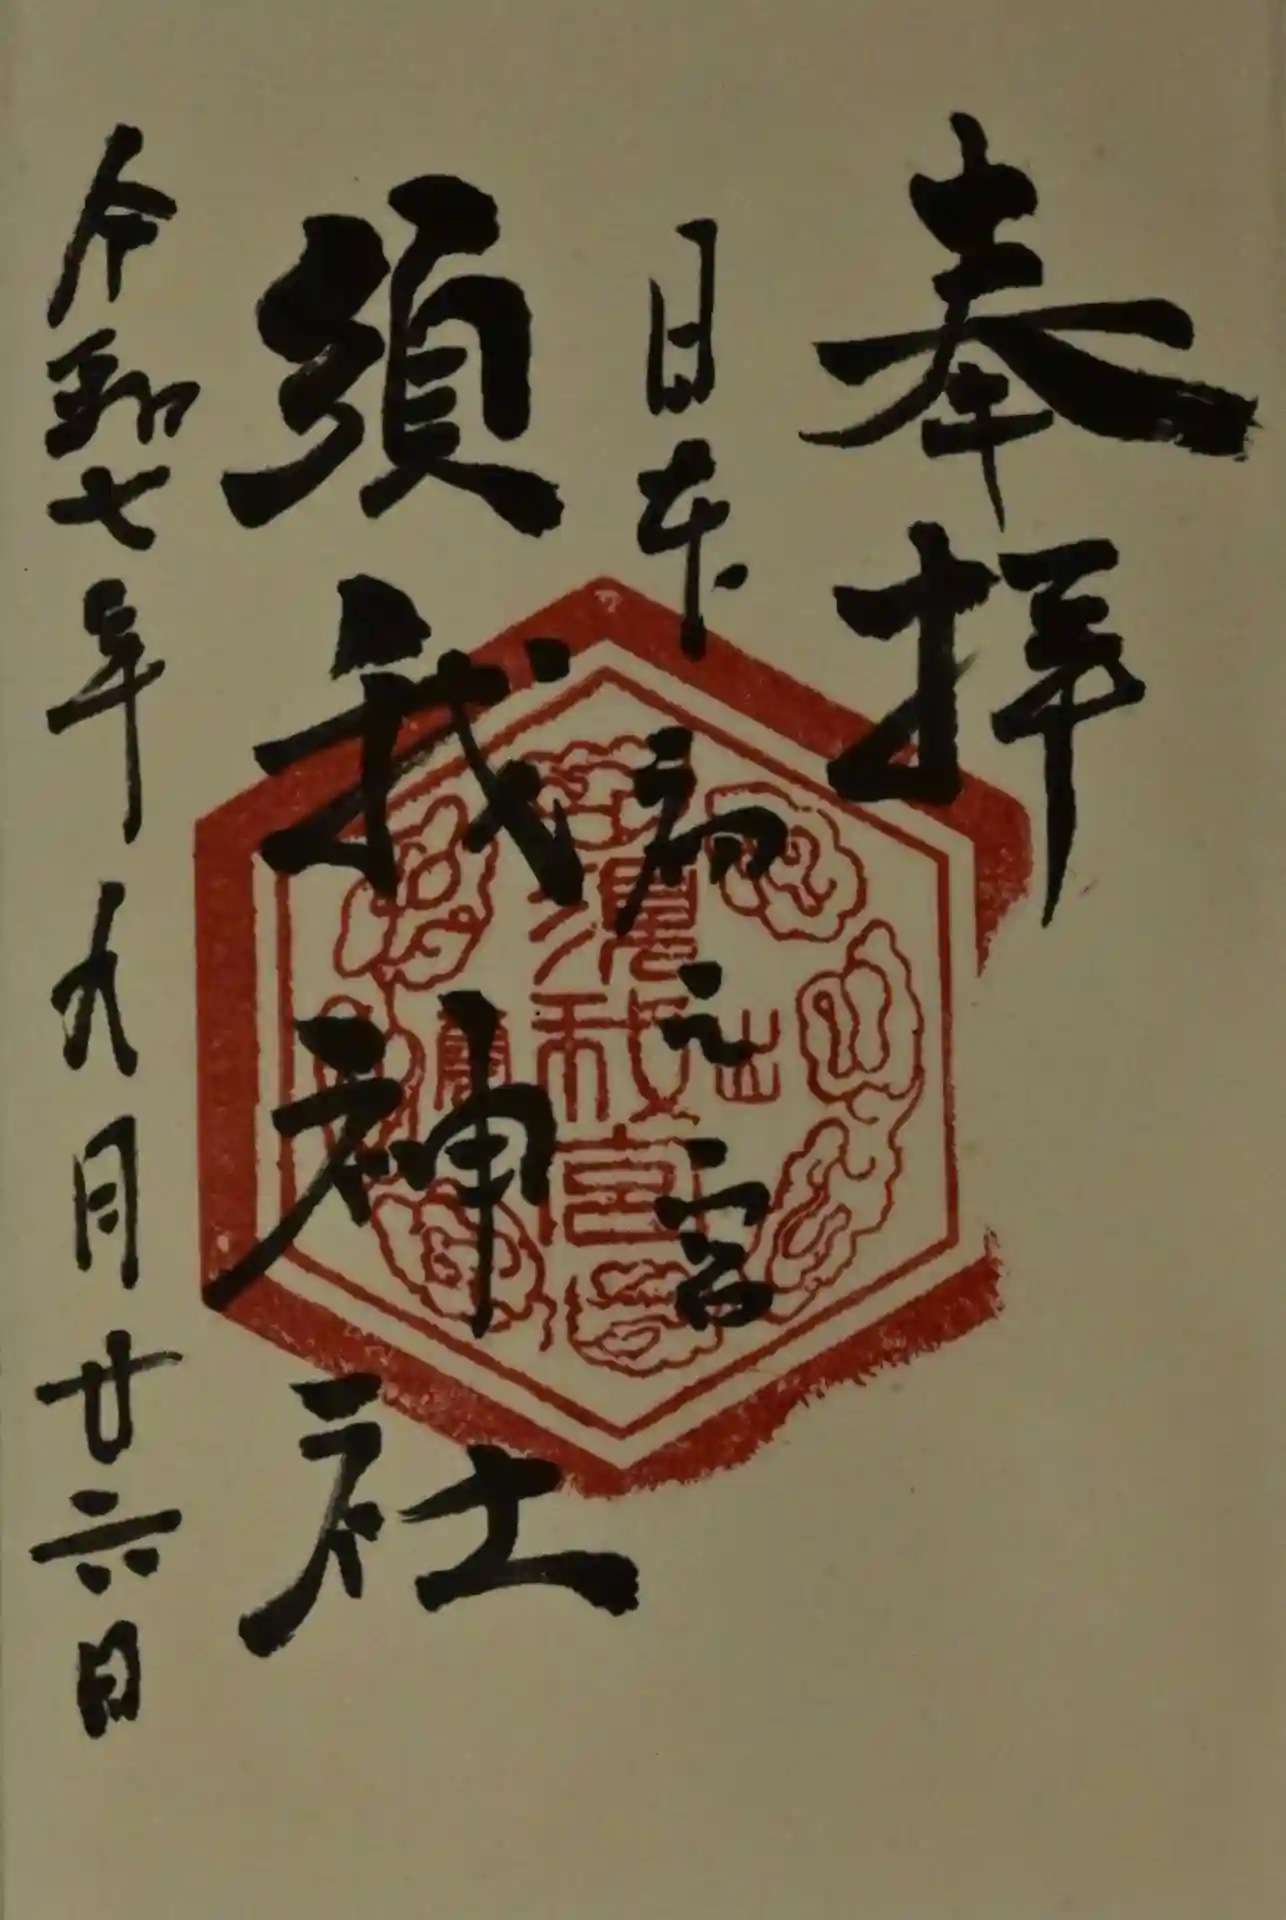 奉拝
日本初之宮
須我神社
令和七年九月廿六日
出
須我宮
雲